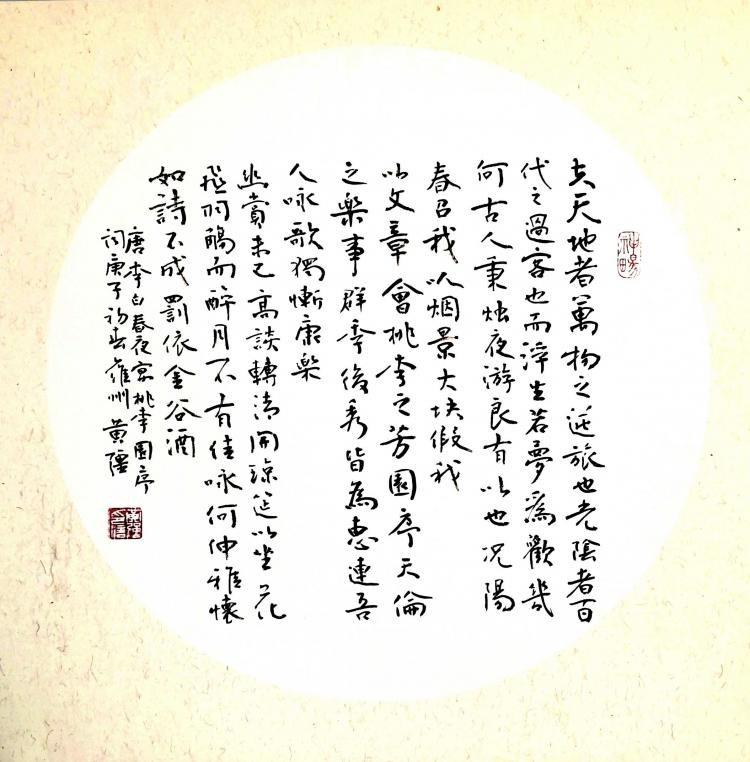 夫天地者萬物之逆旅也光陰者百
代之過客也而浮生若夢為歡幾
何古人秉烛夜游良有以也况陽
春召我以烟景大块假我
以文章會桃李之芳園序天倫
之樂事群季後秀皆為惠連吾
人咏歌獨慚康樂
幽賞未已高談轉清開瓊筵以坐花
飛羽觴而醉月不有佳咏何伸雅懷
如詩不成罰依金谷酒
唐李白春夜宴桃李園序
詞庚子初春雍州黄隆